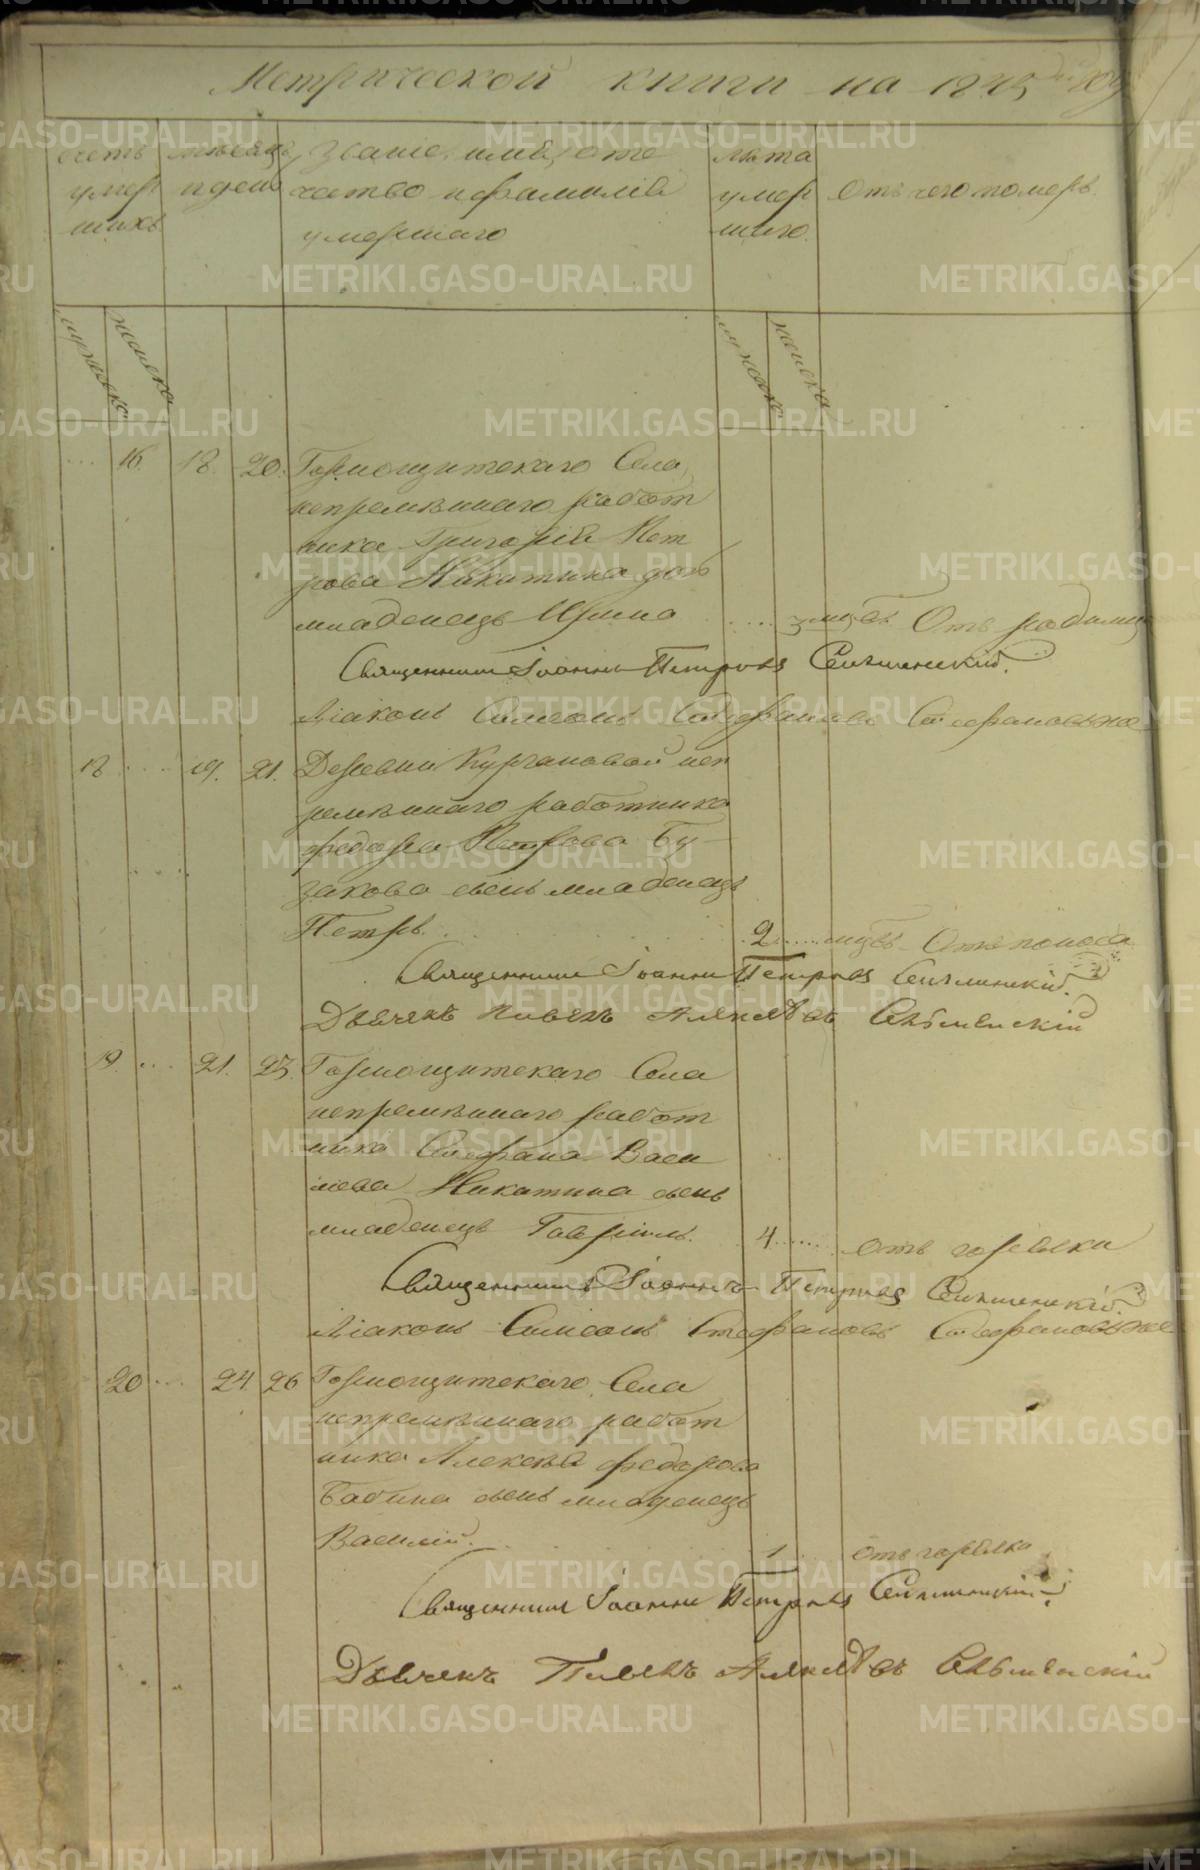 Метрической книги на 1845 год
счетъ умер шихъ
мѣсяцъ и день
званіе, имя, оте чество и фамилія умершаго
лѣта умер шаго.
отъ чего померъ.
мужеска
женска
мужеска
женска
16. 18. 20. Горнощитскаго Села,
непремѣннаго работ
ника Григорія Пет
рова Никитина дочь
младенецъ Ирина ..... 3 мцъ Отъ родимца
Священникъ Іоаннъ Петровъ
Діаконъ Симеонъ Стефановъ
18 .... 19. 21. Деревни Кургановой неп
ремѣннаго работника
Федора Петрова Бу-
закова сынъ младенецъ
Петръ. 2 ..... мцъ Отъ поноса
Священникъ Іоаннъ Петровъ
Дьячекъ Павелъ
19. ... 21. 23. Горнощитскаго Села
непремѣннаго работ
ника Стефана Васи
льева Никитина сынъ
младенецъ Гавріилъ. 4 ...... отъ горячки
Священникъ Іоаннъ Петровъ
Діаконъ Симеонъ Стефановъ
20 ... 24 26 Горнощитскаго Села
непремѣннаго работ
ника Алексѣя Федорова
Бабина сынъ младенецъ
Василій. 1 отъ горячки
Священникъ Іоаннъ Петровъ
Дьячекъ Павелъ
METRIKI.GASO-URAL.RU